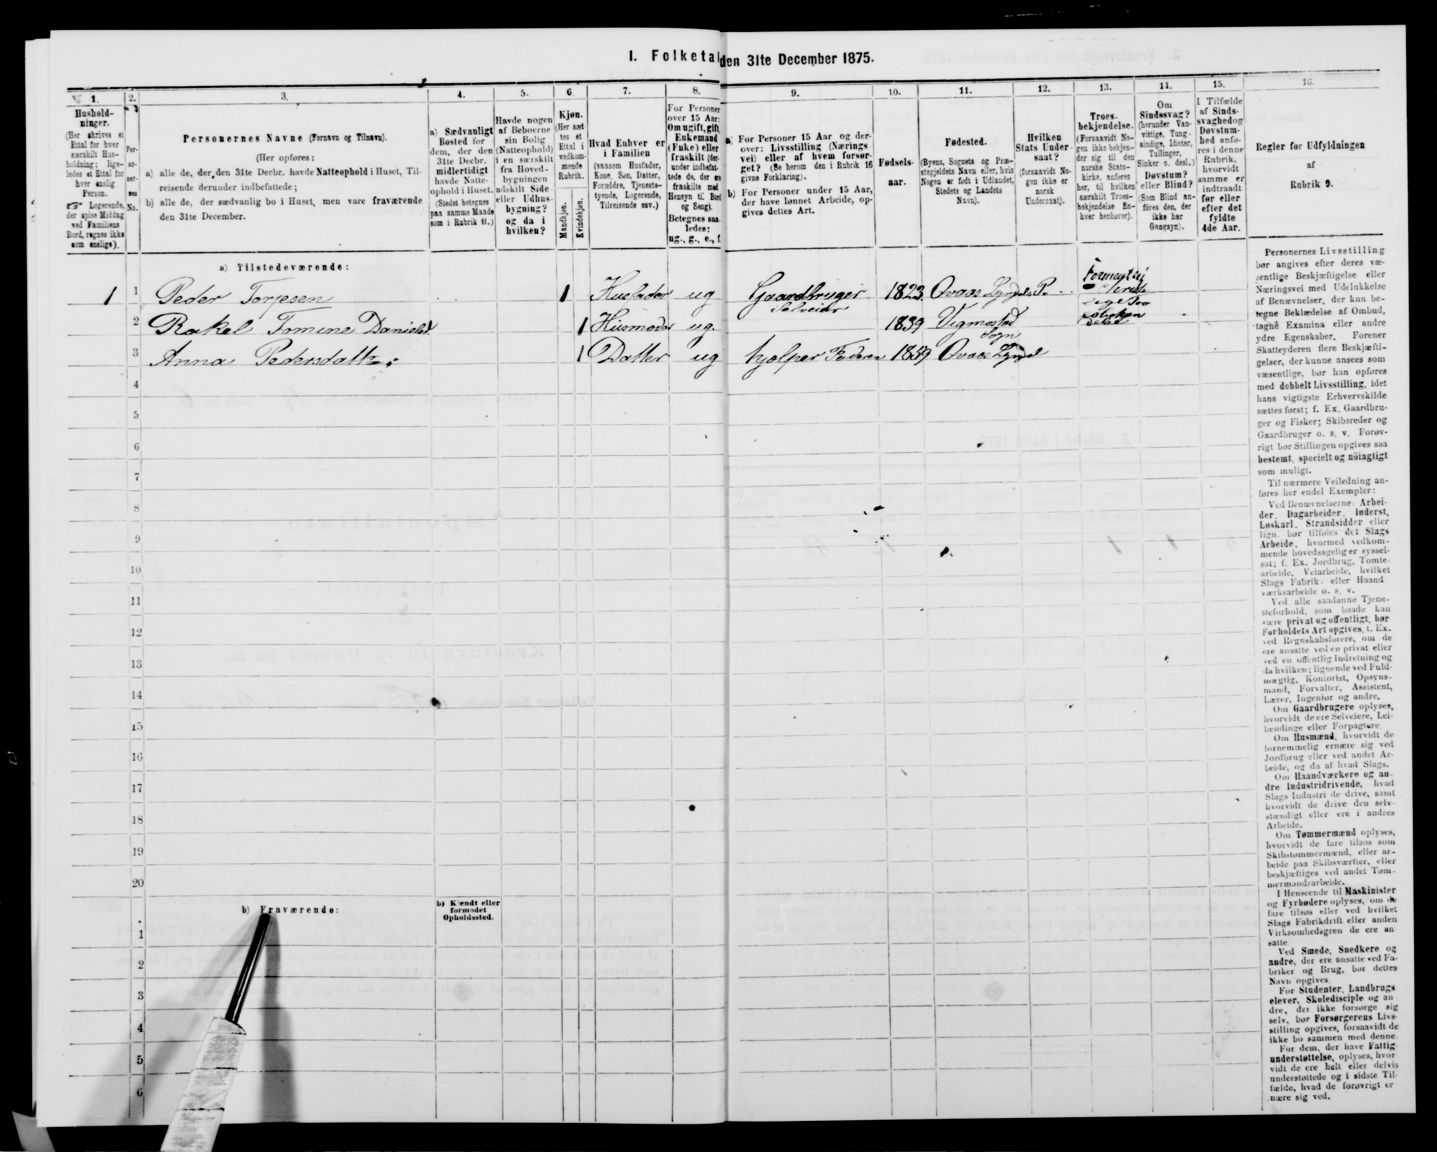 I. Folketal den 31te December 1875.
1.
Hushold-
ninger.
(Her skrives et
Ettal for hver
særskilt Hus-
holdning; lige-
ledes et Ettal for
hver enslig
Person.
Logerende,
der spise Middag
ved Familiens
Bord, regnes ikke
som enslige).
2.
Per-
so-
ner-
nes
No.
3.
Personernes Navne (Fornavn og Tilnavn).
(Her opføres:
a) alle de, der den 31te Decbr. havde Natteophold i Huset, Til-
reisende derunder indbefattede;
b) alle de, der sædvanlig bo i Huset, men vare fraværende
den 31te December.
4.
a) Sædvanligt
Bosted for
dem, der den
31te Decbr.
midlertidigt
havde Natte-
ophold i Huset.
(Stedet betegnes
paa samme Maade
som i Rubrik 11.)
5.
Havde nogen
af Beboerne
sin Bolig
(Natteophold)
i en særskilt
fra Hoved-
bygningen
adskilt Side
eller Udhus-
bygning?
og da i
hvilken?
6.
Kjøn.
(Her sæt-
tes et
Ettal i
vedkom-
mende
Rubrik.
Mandkjøn.
Kvindekjøn.
7.
Hvad Enhver er
i Familien
(saasom Husfader,
Kone, Søn, Datter,
Forældre, Tjeneste-
tyende, Logerende,
Tilreisende osv.)
8.
For Personer
over 15 Aar:
Om ugift, gift,
Enkemand
(Enke) eller
fraskilt (der-
under indbefat-
tede de, der ere
fraskilte med
Hensyn til Bord
og Seng).
Betegnes saa-
ledes:
ug., g., e., f.
9.
a) For Personer 15 Aar og der-
over: Livsstilling (Nærings-
vei) eller af hvem forsør-
get? (Se herom den i Rubrik 16
givne Forklaring).
b) For Personer under 15 Aar,
der have lønnet Arbeide, op-
gives dettes Art.
10.
Fødsels-
aar.
11.
Fødested.
(Byens, Sognets og Præ-
stegjeldets Navn eller, hvis
Nogen er født i Udlandet,
Stedets og Landets
Navn).
12.
Hvilken
Stats Under-
saat?
(forsaavidt No-
gen ikke er
norsk
Undersaat).
13.
Troes-
bekjendelse.
(Forsaavidt No-
gen ikke bekjen-
der sig til den
norske Stats-
kirke, anføres
her, til hvilken
særskilt Troes-
bekjendelse En-
hver henhører).
14.
Om
Sindssvag?
(herunder Van-
vittige, Tung-
sindige, Idioter,
Tullinger,
Sinker o. desl.)
Døvstum?
eller Blind?
(Som Blind an-
føres den, der
ikke har
Gangsyn).
15.
I Tilfælde
af Sinds-
svaghed og
Døvstum-
hed anfø-
res i denne
Rubrik,
hvorvidt
samme er
indtraadt
før eller
efter det
fyldte
4de Aar.
16.
Regler for Udfyldningen
af
Rubrik 9.
a) Tilstedeværende:
1 1 Peder Torjesen 1 Husfader ug Gaardbruger Selveier 1823
2 Rakel Tomine 1 Husmoder ug. 1839 Vigmostad Sogn
3 Anna Pedersdatter 1 Datter ug hjælper Federen 1859
4
5
6
7
8
9
10
11
12
13
14
15
16
17
18
19
20
b) Fraværende:
b) Kjendt eller
formodet
Opholdssted.
1
2
3
4
5
6
Personernes Livsstilling
bør angives efter deres væ-
sentlige Beskjæftigelse eller
Næringsvei med Udelukkelse
af Benævnelser, der kun be-
tegne Beklædelse af Ombud,
tagne Examina eller andre
ydre Egenskaber. Forener
Skatteyderen flere Beskjæfti-
gelser, der kunne ansees som
væsentlige, bør han opføres
med dobbelt Livsstilling, idet
hans vigtigste Erhvervskilde
sættes først; f. Ex. Gaardbru-
ger og Fisker; Skibsreder og
Gaardbruger o. s. v. Forøv-
rigt bør Stillingen opgives saa
bestemt, specielt og nøiagtigt
som muligt.
Til nærmere Veiledning an-
føres her endel Exempler:
Ved Benævnelserne: Arbei-
der, Dagarbeider, Inderst,
Løskarl, Strandsidder eller
lign. bør tilføies det Slags
Arbeide, hvormed vedkom-
mende hovedsagelig er syssel-
sat; f. Ex. Jordbrug, Tomte-
arbeide, Veiarbeide, hvilket
Slags Fabrik- eller Haand-
værksarbeide o. s. v.
Ved alle saadanne Tjene-
steforhold, som baade kan
være privat og offentligt, bør
Forholdets Art opgives, f. Ex.
ved Regnskabsførere, om de
ere ansatte ved en privat eller
ved en offentlig Indretning og
da hvilken; lignende ved Fuld-
mægtig, Kontorist, Opsyns-
mand, Forvalter, Assistent,
Lærer, Ingeniør og andre.
Om Gaardbrugere oplyses,
hvorvidt de ere Selveiere, Lei-
lændinge eller Forpagtere.
Om Husmænd, hvorvidt de
fornemmelig ernære sig ved
Jordbrug eller ved andet Ar-
beide, og da af hvad Slags.
Om Haandværkere og an-
dre Industridrivende, hvad
Slags Industri de drive, samt
hvorvidt de drive den selv-
stændigt eller ere i andres
Arbeide.
Om Tømmermænd oplyses,
hvorvidt de fare tilsøs som
Skibstømmermænd, eller ar-
beide paa Skibsværfter, eller
beskjæftiges ved andet Tøm-
mermandsarbeide.
I Henseende til Maskinister
og Fyrbødere oplyses, om de
fare tilsøs eller ved hvilket
Slags Fabrikdrift eller anden
Virksomhedsgren de ere an-
satte.
Ved Smede, Snedkere og
andre, der ere ansatte ved Fa-
briker og Brug, bør dettes
Navn opgives.
For Studenter, Landbrugs-
elever, Skoledisciple og an-
dre, der ikke forsørge sig
selv, bør Forsørgerens Livs-
stilling opgives, forsaavidt de
ikke bo sammen med denne.
For dem, der have Fattig-
understøttelse, oplyses, hvor-
vidt de ere helt eller delvis
understøttede og i sidste Til-
fælde, hvad de forøvrigt er-
nære sig ved.